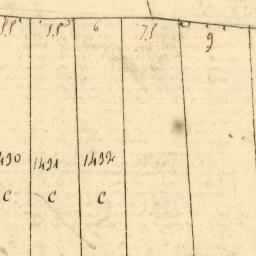 5.5 5.5 6 7.5 9
1490 1491 1492
C C C